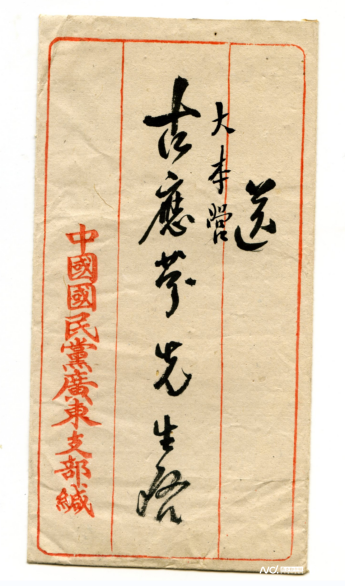 送
大本營
古應芬先生啓
中國國民黨廣東支部緘